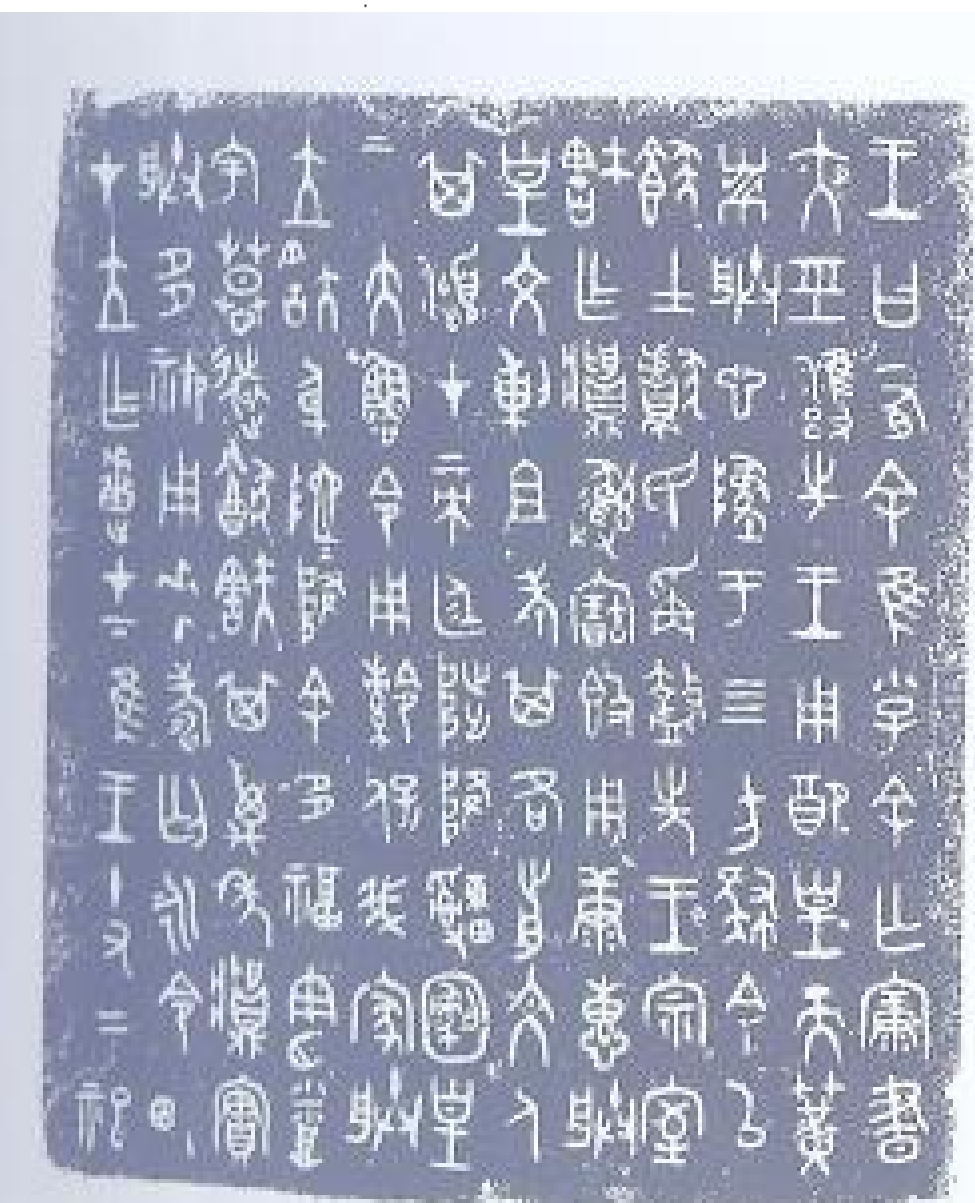 王曰有余隹小子余亡康晝
夜巠雝先王用配皇天簧
黹朕心墜于四方肆余以
𩛥士獻民爯盩先王宗室
㝬乍𩰫彝寶簋用康惠朕
皇文剌且考其各前文人
其瀕才帝廷陟降申恪皇
帝大魯令用令保我家朕
立㝬身阤阤降余多福憲烝
宇慕遠猷㝬其萬年𩰫實
朕多禦用𠦪壽匄永令畯
才立乍疐才下隹王十又二祀